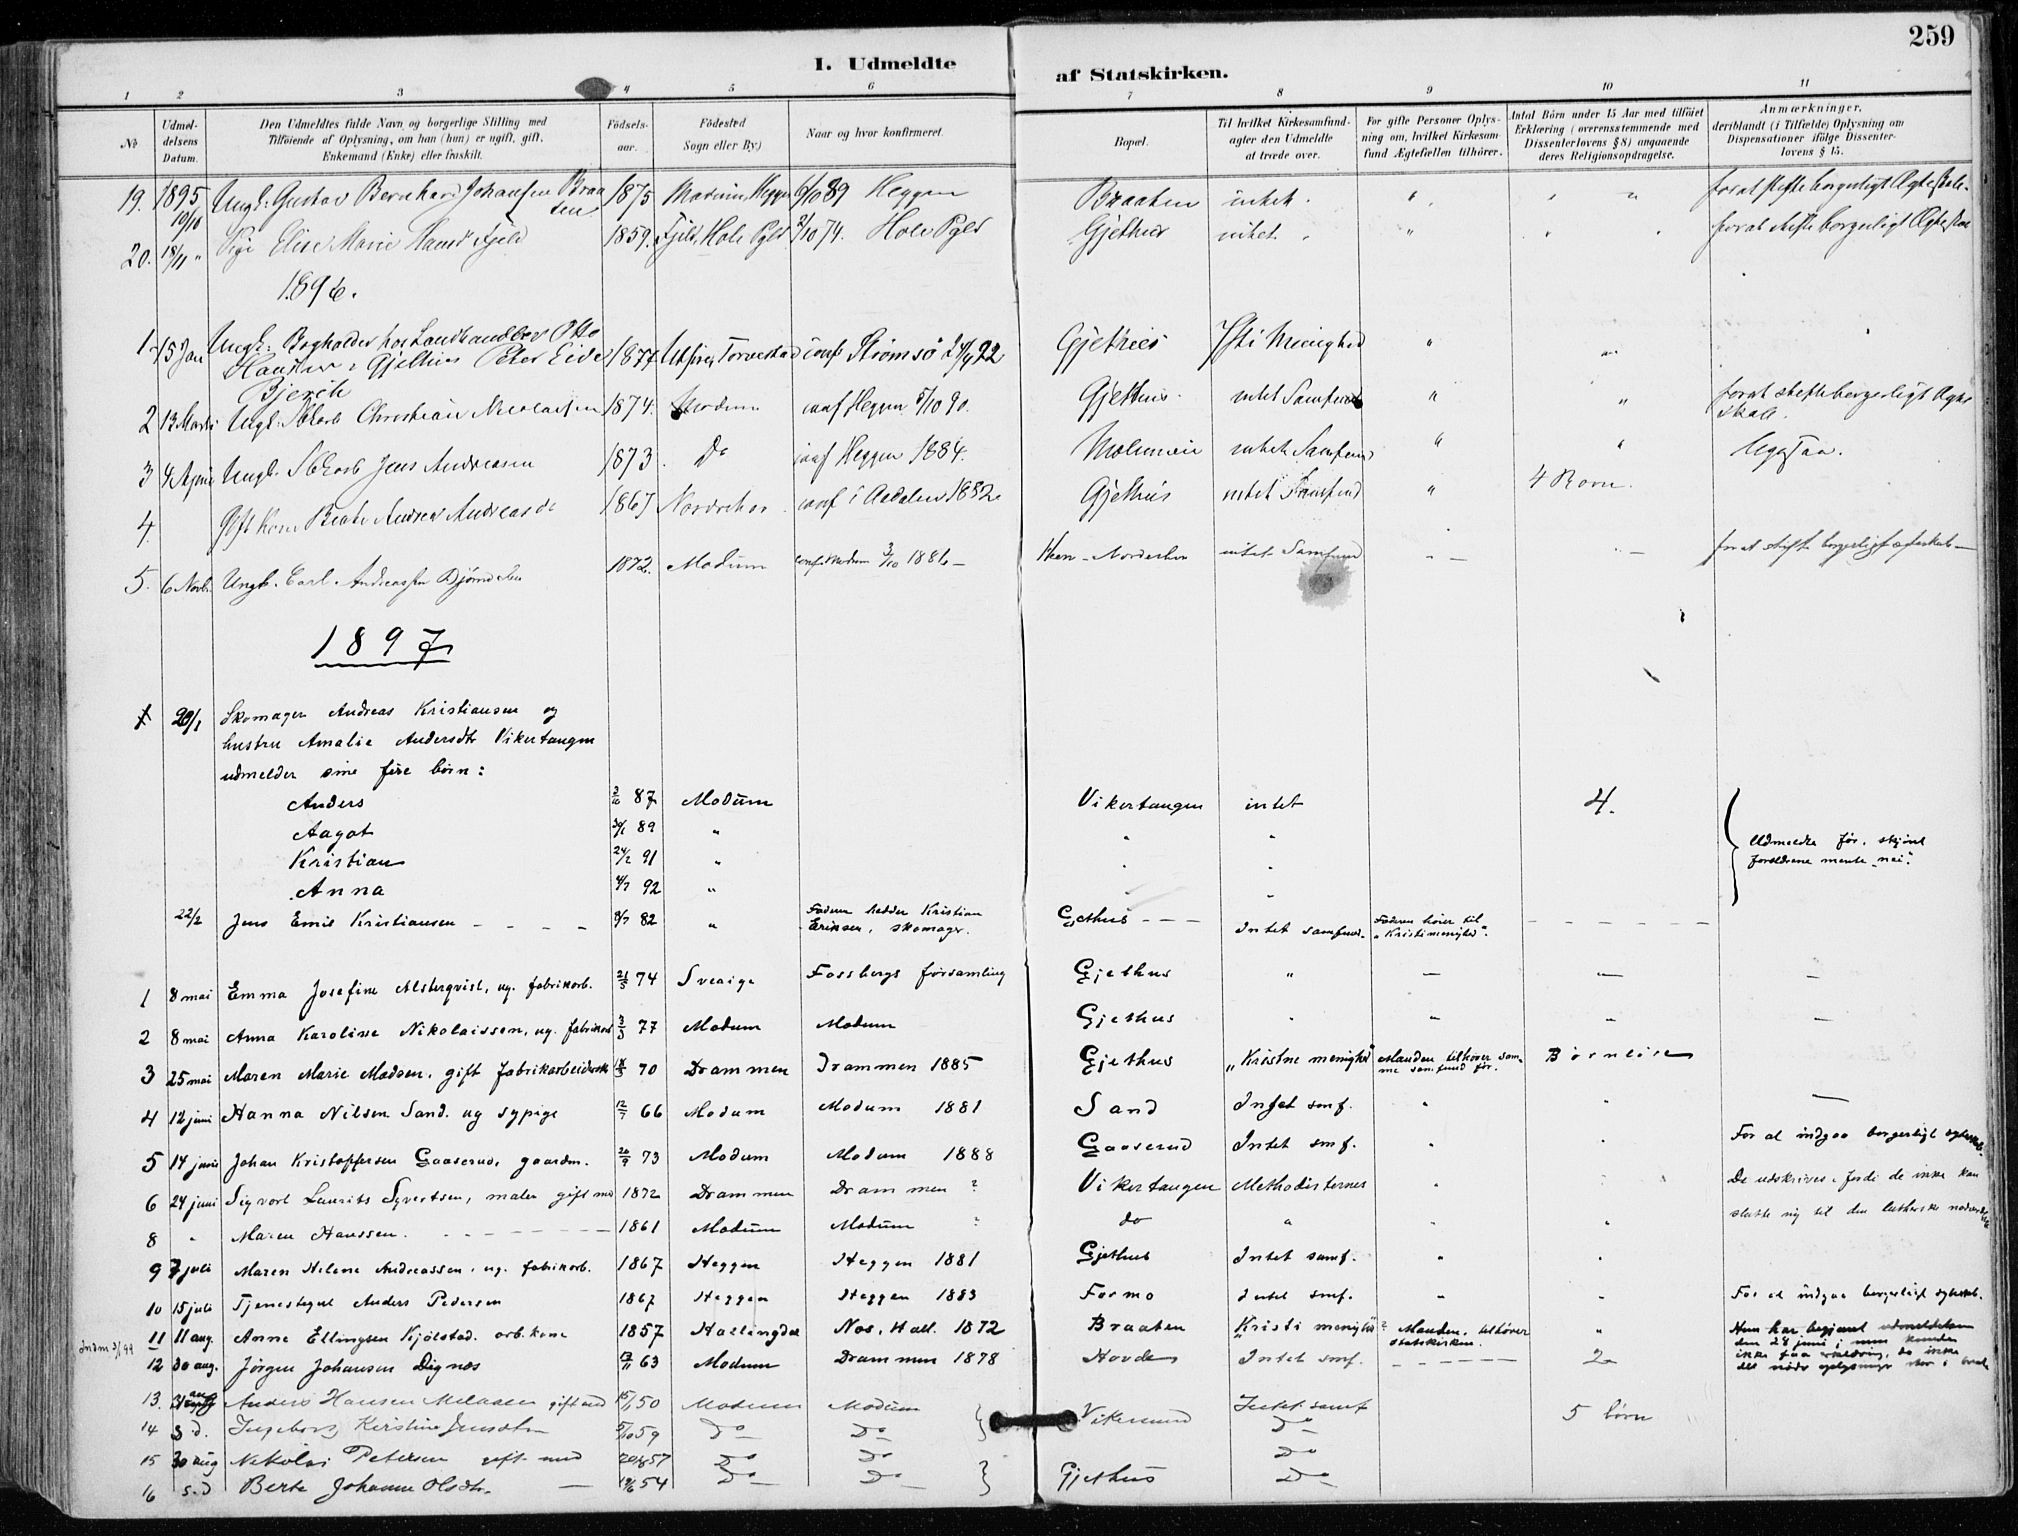 259
I. Udmeldte af Statskirken.
1 2 3 4 5 6 7 8 9 10 11
No
Udmeldelsens Datum.
Den Udmeldtes fulde Navn og borgerlige Stilling med
Tilføiende af Oplysning, om han (hun) er ugift, gift,
Enkemand (Enke) eller fraskilt.
Fødselsaar.
Fødested
Sogn eller By.)
Naar og hvor konfirmeret.
Bopæl.
Til hvilket Kirkesamfund-
agter den Udmeldte
at træde over.
For gifte Personer Oplys-
ning om, hvilket Kirkesam-
fund Ægtefællen tilhører.
Antal Børn under 15 Aar med tilføiet
Erklæring (overensstemmende med
Dissenterlovens § 8) angaaende
deres Religionsopdragelse.
Anmærkninger,
deriblandt (i Tilfælde) Oplysning om
Dispensationer ifølge Dissenter-
lovens § 15.
19. 1895 10/10 Ungk: Gustav Bernhard Johansen Braaten 1875 Modum, Heggen 6/10 89 Heggen Braaten intet " " " for at stifte borgerligt Ægteskab
20. 18/11 " Pige Elise Marie Fjeld 1859. Fjeld, Hole Pgld /10 74. Hole Pgld Gjethus intet " " " for at stifte borgerligt Ægteskab
1896.
1 15 Jan Ungk: Bogholder hos Landhandler Otto
Gjethus Peter Eide
Bjerch 1874 Torvestad conf Strømsø 92 Gjethus Menighed "
2 13 Marts Ungk: Christian Nicolaisen 1874. Modum conf Heggen 5/10 90. Gjethus intet Samfund " " for at stifte borgerligt Ægteskab.
3 4 April Ungk. Jens Andreasen 1873. Do conf Heggen 1884. intet Samfund " " Ugift
4. Gift Kone Beate Andrea Andreasdr 1867 Norderhov conf i Aadalen 1882 Gjethus intet Samfund " 4 Børn.
5. 6 Novb. Ungk. Carl Andreassen 1872. Modum conf. Modum 3/10 1886 – Heen – Norderhov intet Samfund – – for at stifte borgerligt ægteskab –
1897
1 29/1 Skomager Andreas Kristiansen og
hustru Amalie Andersdtr Vikertangen
udmelder sine fire børn:
Anders 3/10 87 Modum Vikertangen intet 4.
Aagot 89 " " "
Kristian 24/2 91 " " "
Anna 4/7 92 " " "
Udmeldte før, skjønt
forældrene mente "nei".
22/2 Jens Emil Kristiansen – – – 8/7 82 " Faderen hedder Kristian
Eriksen, skomager. Gjethus – – – Intet samfund. Faderen hører til
"Kristi menighed".
1 8 mai Emma Josefine Alsterqvist, ug. fabrikarb. 21/3 74 Sverige Fossbergs forsamling Gjethus " – – –
2 8 mai Anna Karoline Nikolaissen, ug. fabrikarb 3/3 77 Modum Modum Gjethus " " " –
3 25 mai Maren Marie Madsen, gift fabrikarbeiderske 70 Drammen Drammen 1885 Gjethus "Kristne menighed" Manden tilhører sam-
me samfund før. Børnløse
4 12 juni Hanna Nilsen Sand. ug sypige 12/7 66 Modum Modum 1881 Sand Intet smf. " " –
5 14 juni Johan Kristoffersen Gaaserud, gaardm. 20/9 73 Modum Modum 1888 Gaaserud Intet smf. " " For at indgaa borgerligt ægteskab.
6 24 juni Sigvart Laurits Syvertsen, maler gift med 1872 Drammen Drammen ? Vikertangen Methodisternes " " De udskrives, fordi de ikke kan
8 " Maren Hanssen. – – – – 1861 Modum Modum ? do " " " slutte sig til den lutherske nadverlære
9 7 juli Maren Helene Andreassen, ug. fabrikarb. 1867 Heggen Heggen 1881 Gjethus Intet samf. " "
10 15 juli Tjenestegut Anders Pedersen 1867 Heggen Heggen 1883 Formo Intet smf. " " For at indgaa borgerligt ægteskab.
11 11 aug. Anne Ellingsen Kjølstad. arb.kone 1857 Hallingdal Nes, Hall. 1872 Braaten "Kristi menighed" ? Manden tilhører
statskirken. " Hun har begjæret udmeldelsen
den 24 juni; men kunde
ikke faa erklæring, da ikke
12 30 aug. Jørgen Johansen Dignæs 63 Modum Drammen 1878 Hovde Intet smf. – – – – 2
13. 31 aug Anders Hansen Melaaen gift med 15/1 50 Modum Modum Vikersund Intet samf 5 børn
14 s.d. Ingeborg Kirstine Jensdtr 5/10 59 Do Do Do
15 30 aug Nikolai Petersen gift med 57 Do Do Do
16 s.d Berte Johanne Olsdtr. – 19/6 54 Do Do Gjethus Do